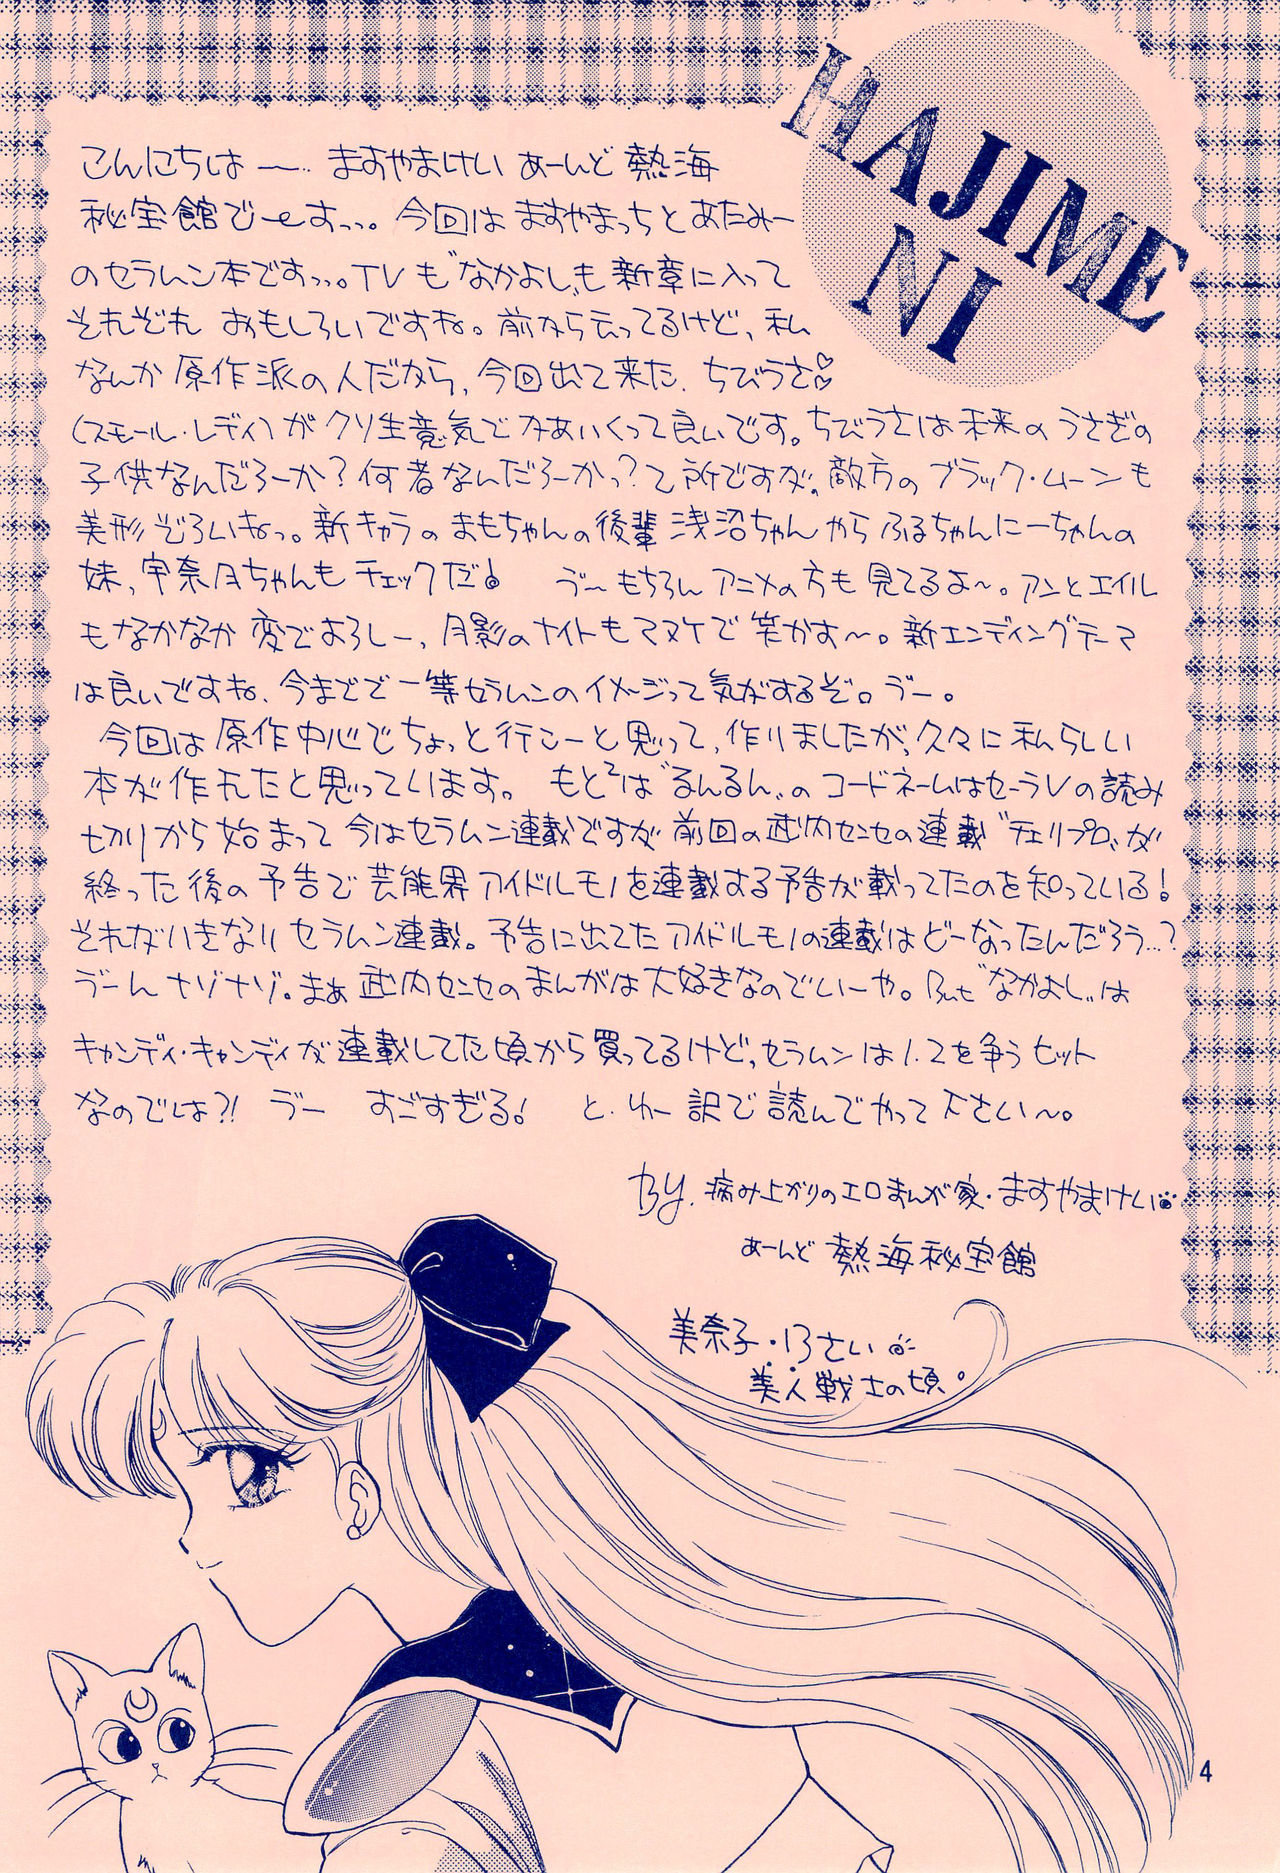 HAJIME
NI
こんにちは〜… ますやまけい あーんど 熱海
秘宝館でーすっっ。今回は ますやまっちと あたみー
のセラムン本ですっっ。TVも〝なかよし〟も 新章に入って
それぞれ おもしろいですね。前から云ってるけど、私
なんか 原作派の人だから、今回出て来た、ちびうさ♡
(スモール・レディ)が クソ生意気で かあいくって良いです。ちびうさは未来の うさぎの
子供なんだろーか?何者なんだろーかっ?て所ですが。敵方の ブラック・ムーンも
美形ぞろいねっ。新キャラの まもちゃんの後輩 浅沼ちゃん やら ふるちゃんに一ちゃんの
妹、宇奈月ちゃんも チェックだ! ゔー もちろん アニメの方も 見てるよ〜。アンとエイル
もなかなか 変でよろしー、月影のナイトもマヌケで 笑かす〜。新エンディングテーマ
は良いですね、今までで 一等セラムンのイメージって気がするぞ。ゔー。
今回は 原作中心でちょっと行こーと思って、作りましたが、久々に私らしい
本が作れたと思っています。 もと²は〝るんるん〟の コードネームはセーラVの読み
切りから 始まって 今はセラムン連載ですが 前回の武内センセの連載〝チェリプロ〟が
終った後の予告で 芸能界アイドルモノを連載する予告が載ってたのを知っている!
それがいきなり セラムン連載。予告に出てた アイドルモノの連載は どーなったんだろう…?
ゔーん ナゾナゾ。まぁ 武内センセのまんがは大好きなのでいーや。But〝なかよし〟は
キャンディ・キャンディが 連載してた頃から 買ってるけど、セラムンは1.2を争う ヒット
なのでは?! ゔー すごすぎる! と・ゆー訳で 読んでやって下さい〜。
By. 病み上がりのエロまんが家・ますやまけい
あーんど 熱海秘宝館
美奈子・13さい
美人戦士の頃。
4